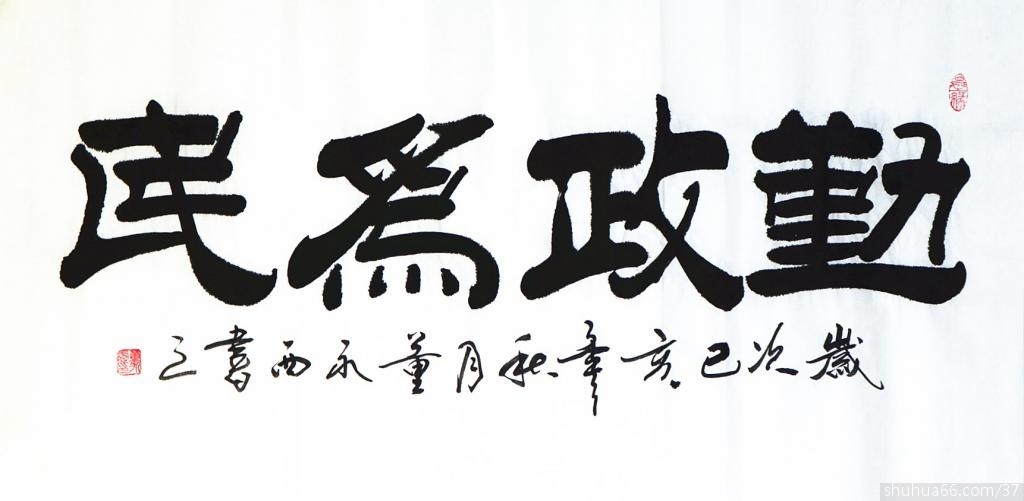 勤政爲民
歲次己亥年秋月董永西書之
shuhua66.com/37